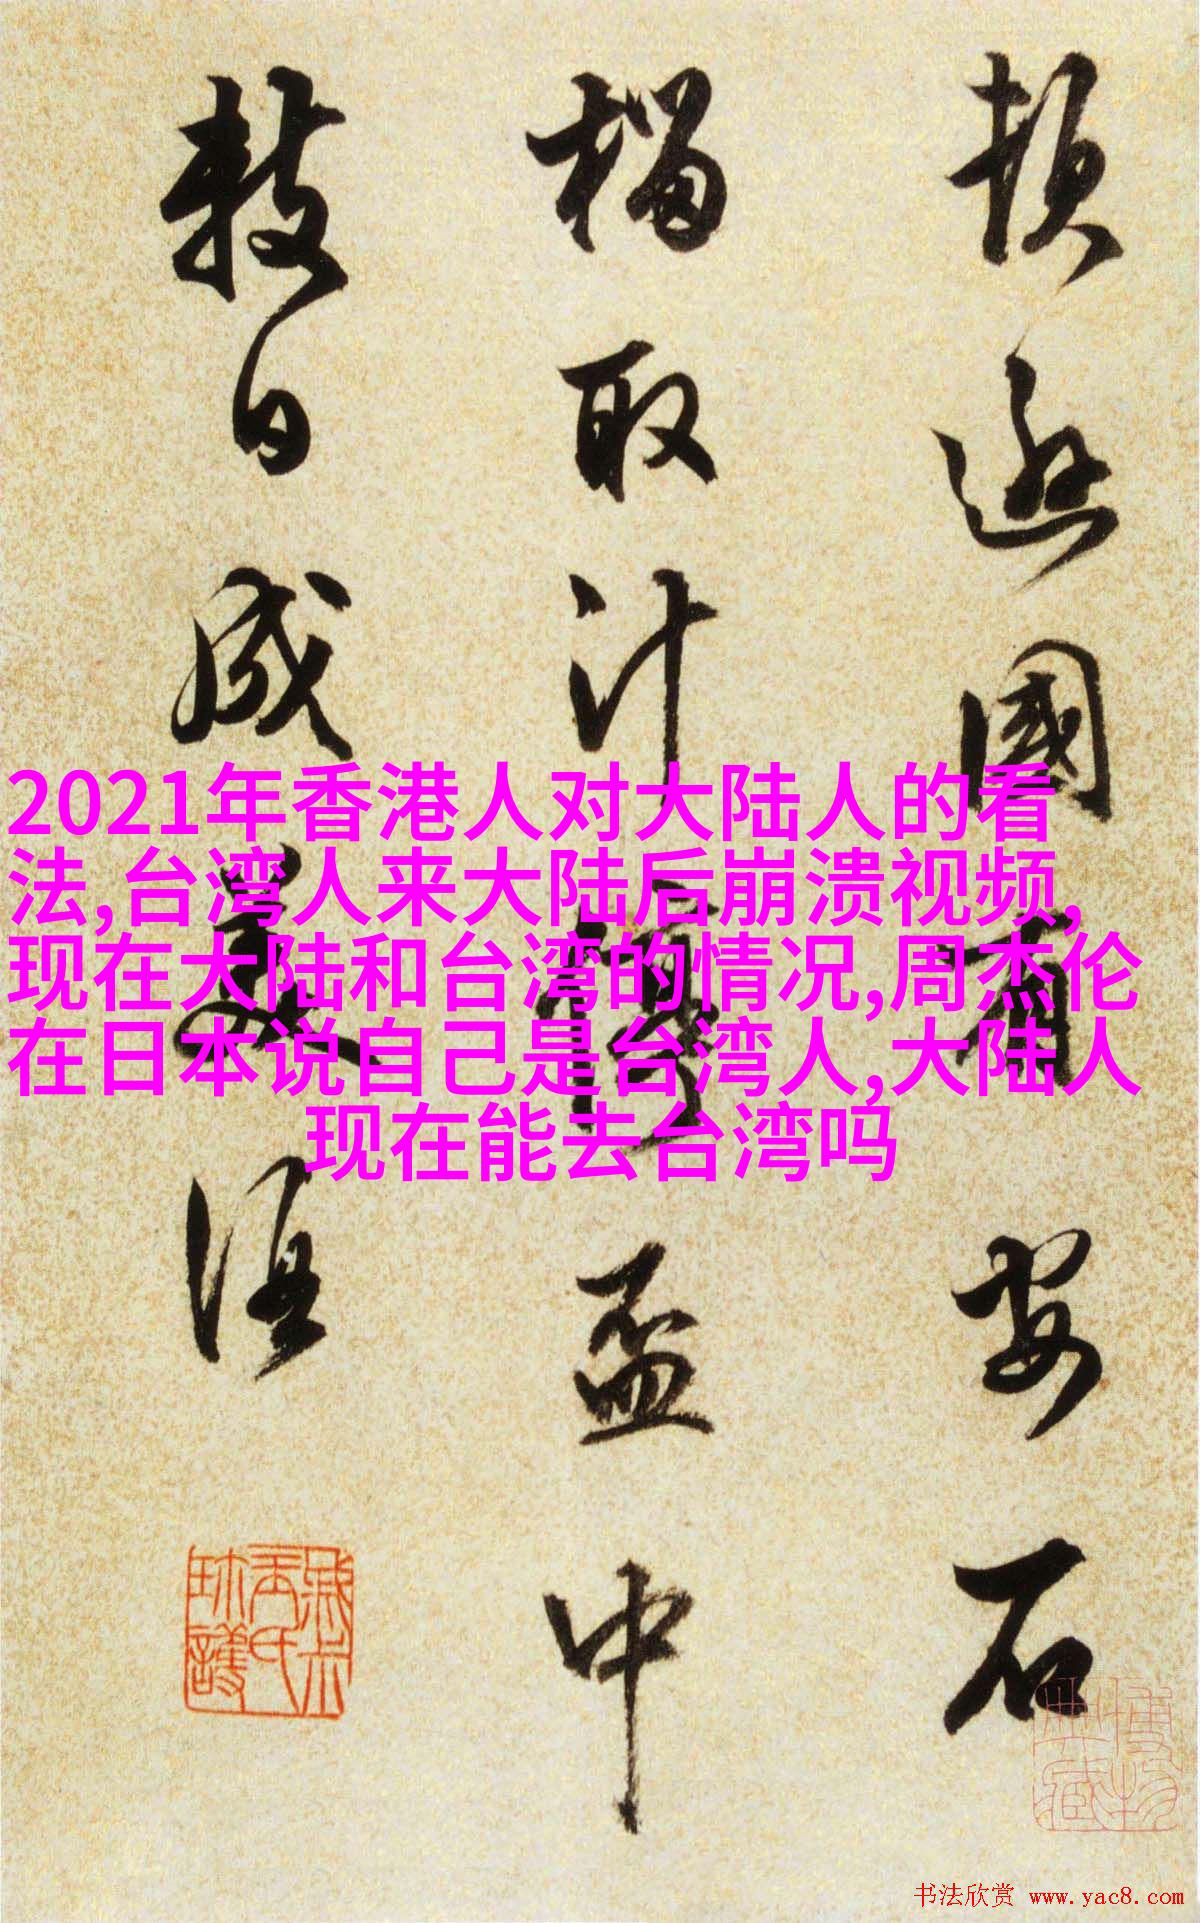 頓遜國有安石
榴取汁停盃中
數日成美酒
2021年香港人对大陆人的看
法,台湾人来大陆后崩溃视频,
现在大陆和台湾的情况,周杰伦
在日本说自己是台湾人,大陆人
现在能去台湾吗
书法欣赏 www.yac8.com